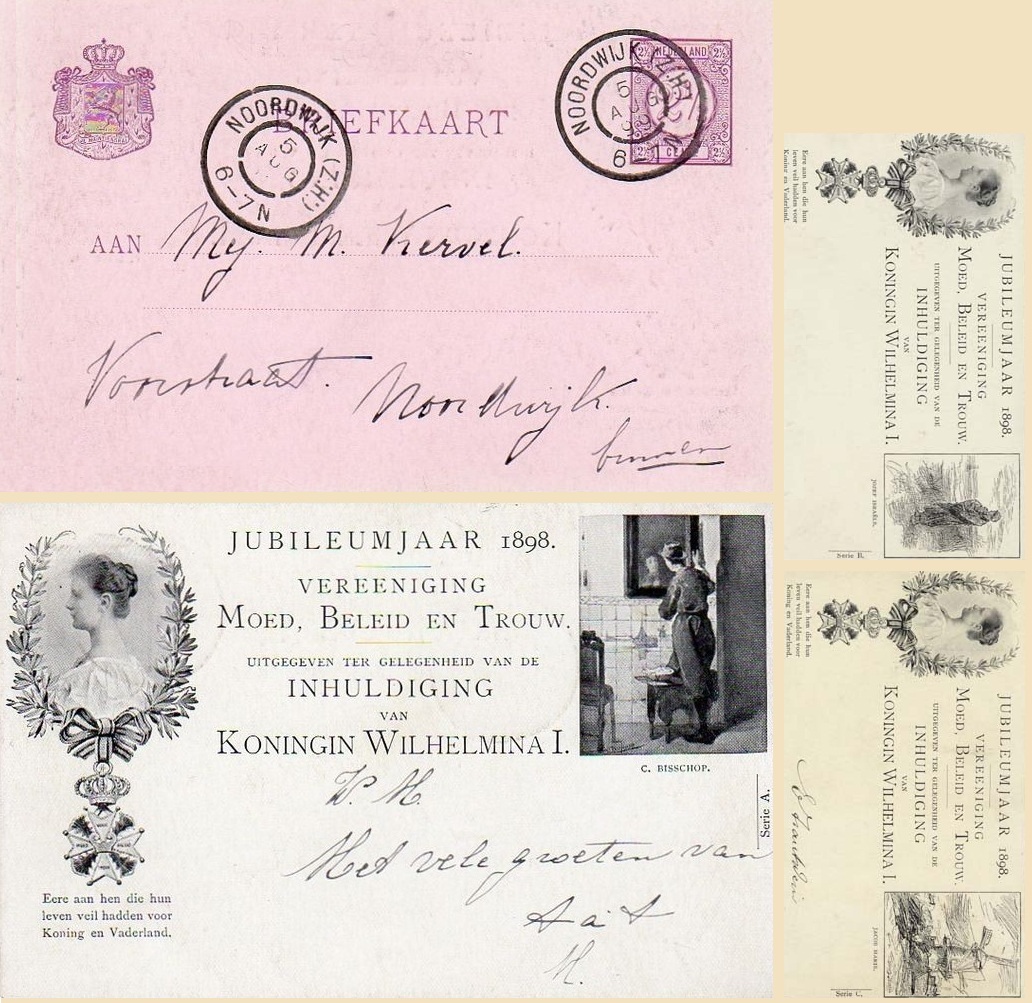 BRIEFKAART
NOORDWIJK (Z.H.)
5
AUG
6-7N
NOORDWIJK (Z.H.)
5
AUG
98
6-7N
2½ NEDERLAND 2½
2½ CENT 2½
AAN Mej. M. Kervel.
Voorstraat. Noordwijk.
binnen
JUBILEUMJAAR 1898.
VEREENIGING
MOED, BELEID EN TROUW.
UITGEGEVEN TER GELEGENHEID VAN DE
INHULDIGING
VAN
KONINGIN WILHELMINA I.
C. BISSCHOP.
Serie A.
Met vele groeten van
Eere aan hen die hun
leven veil hadden voor
Koning en Vaderland.
JUBILEUMJAAR 1898.
VEREENIGING
MOED, BELEID EN TROUW.
UITGEGEVEN TER GELEGENHEID VAN DE
INHULDIGING
VAN
KONINGIN WILHELMINA I.
Eere aan hen die hun
leven veil hadden voor
Koning en Vaderland.
JOZEF ISRAËLS.
Serie B.
JUBILEUMJAAR 1898.
VEREENIGING
MOED, BELEID EN TROUW.
UITGEGEVEN TER GELEGENHEID VAN DE
INHULDIGING
VAN
KONINGIN WILHELMINA I.
Eere aan hen die hun
leven veil hadden voor
Koning en Vaderland.
JACOB MARIS.
Serie C.